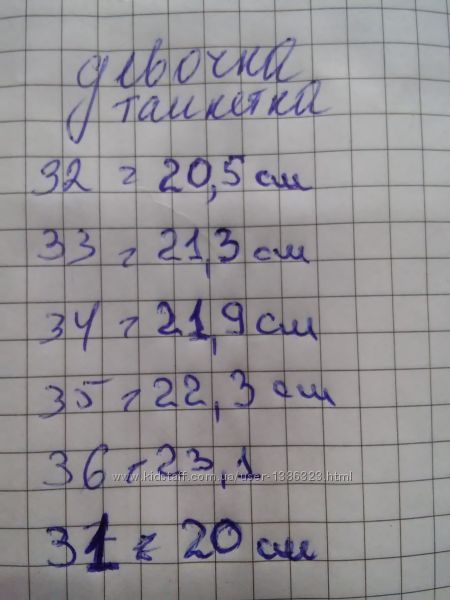 девочка
танкетка
32 = 20,5 см
33 = 21,3 см
34 = 21,9 см
35 = 22,3 см
36 = 23,1
www.kidstaff.com.ua/user-1336323.html
31 = 20 см